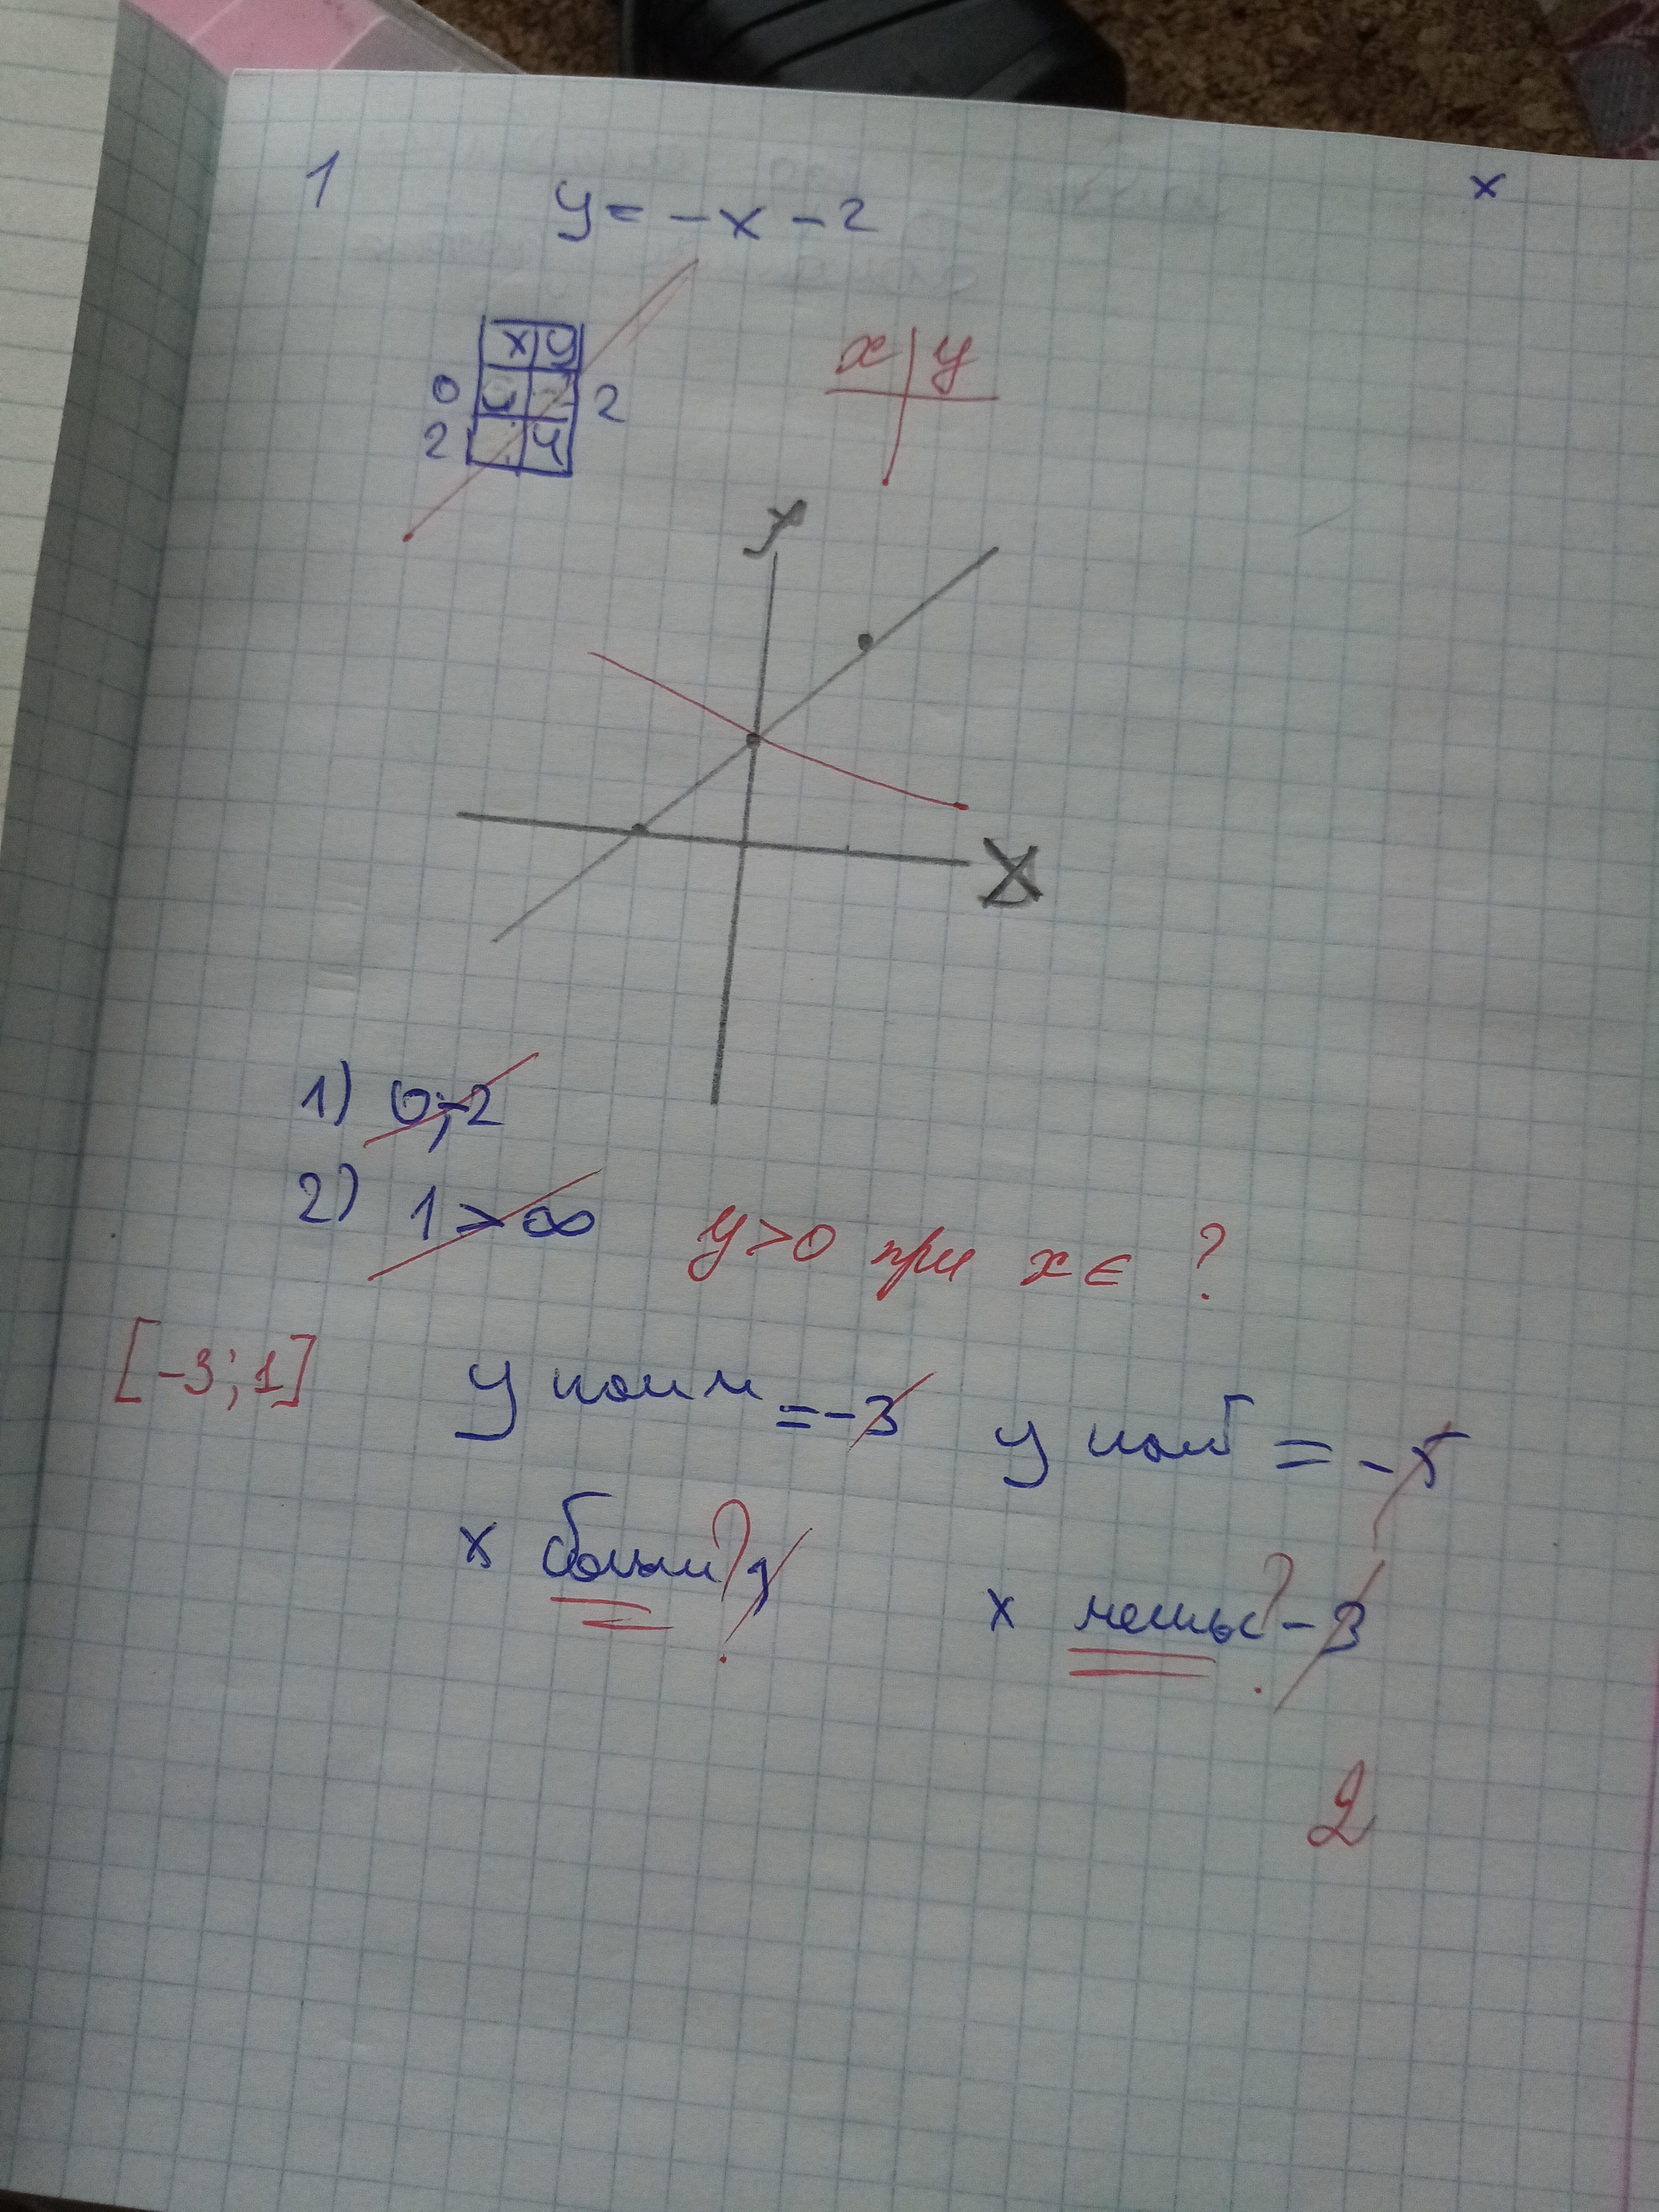 1 y = -x - 2 x
x y x y
0 2
2 4
y
x
1) 0;-2
2) 1 > ∞ y>0 при x ∈ ?
[-3;1] y наим = -3 y наиб = -5
x больш ? 1 x меньш ? -3
2